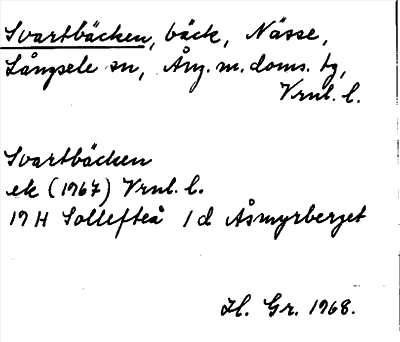 Svartbäcken, bäck, Nässe,
Långsele sn, Ång. m. doms. tg,
Vrnl. l.
Svartbäcken
ek (1967) Vrnl. l.
19 H Sollefteå 1 d Åsmyrberget
H. Gr. 1968.